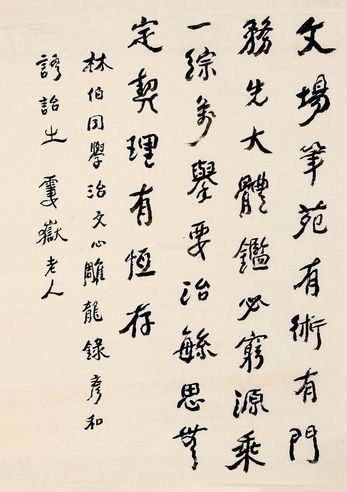 文場筆苑有術有門
務先大體鑑必窮源乘
一綜萬舉要治繁思無
定契理有恆存
林伯同學治文心雕龍錄彥和
語詒之 霋嶽老人